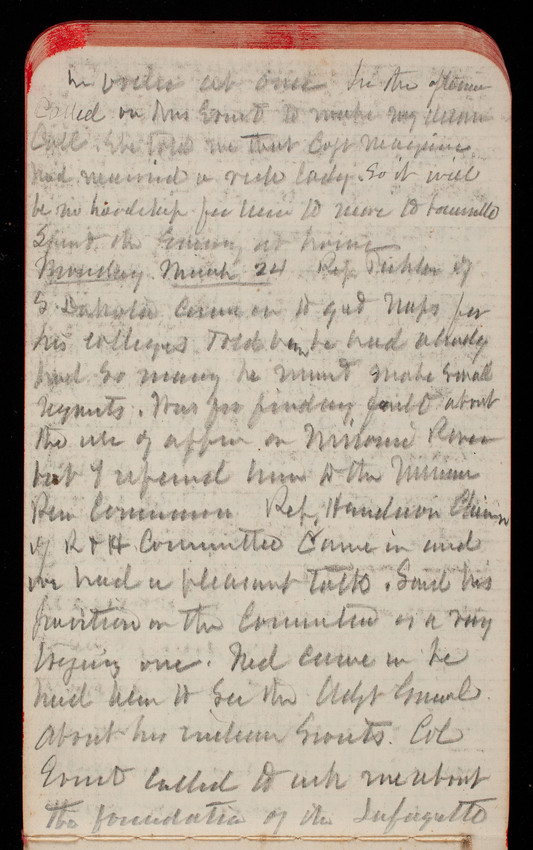 he writes at once In the afternoon
Called on Mrs Ernst to make my dinner
Call. She told me that Capt Maguire
had married a rich lady. So it will
be no hardship for him to move to
Spend the Evening at home
Monday March 24 Rep. Pickler of
S Dakota Came in to get maps for
his colleges. Told him he had already
had so many he must make small
requests. Was for finding fault about
the use of appn on Missouri River
but I referred him to the Missouri
Riv Commission Rep. Henderson Chairm
of R & H Committee Came in and
we had a pleasant talk. Said his
position on the Committee is a very
trying one. Ned came in he
had been to See the Adjt General
about his indian Scouts. Col
Ernst called to ask me about
the foundation of the Lafayette